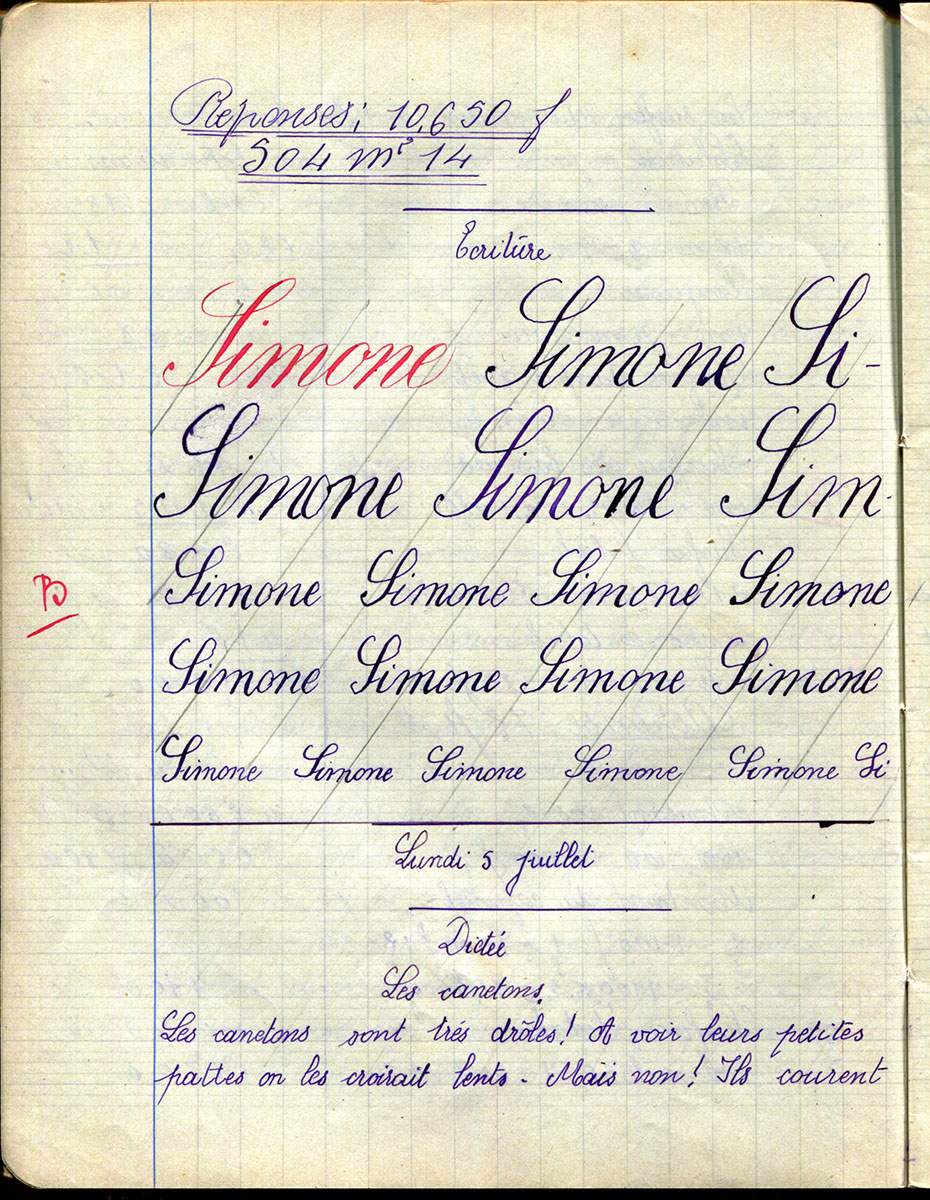 Réponses: 10,650 f
504 m³ 14
Ecriture
Simone Simone Si-
Simone Simone Sim-
Simone Simone Simone Simone
B
Simone Simone Simone Simone
Simone Simone Simone Simone Simone Si
Lundi 5 juillet
Dictée
Les canetons.
Les canetons sont trés drôles! A voir leurs petites
pattes on les croirait lents. Mais non! Ils courent